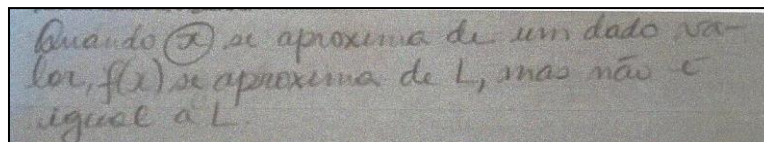 Quando x se aproxima de um dado va-
lor, f(x) se aproxima de L, mas não é
igual a L.